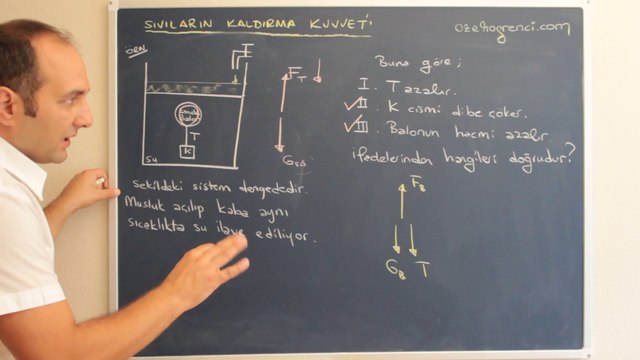 SIVILARIN KALDIRMA KUVVETİ
ozelogrenci.com
ÖRN
T
K
SU
FT
GSİS
Şekildeki sistem dengededir.
Musluk açılıp kaba aynı
sıcaklıkta su ilave ediliyor.
Buna göre;
I. T azalır.
II. K cismi dibe çöker.
III. Balonun hacmi azalır.
ifadelerinden hangileri doğrudur?
FB
GB T